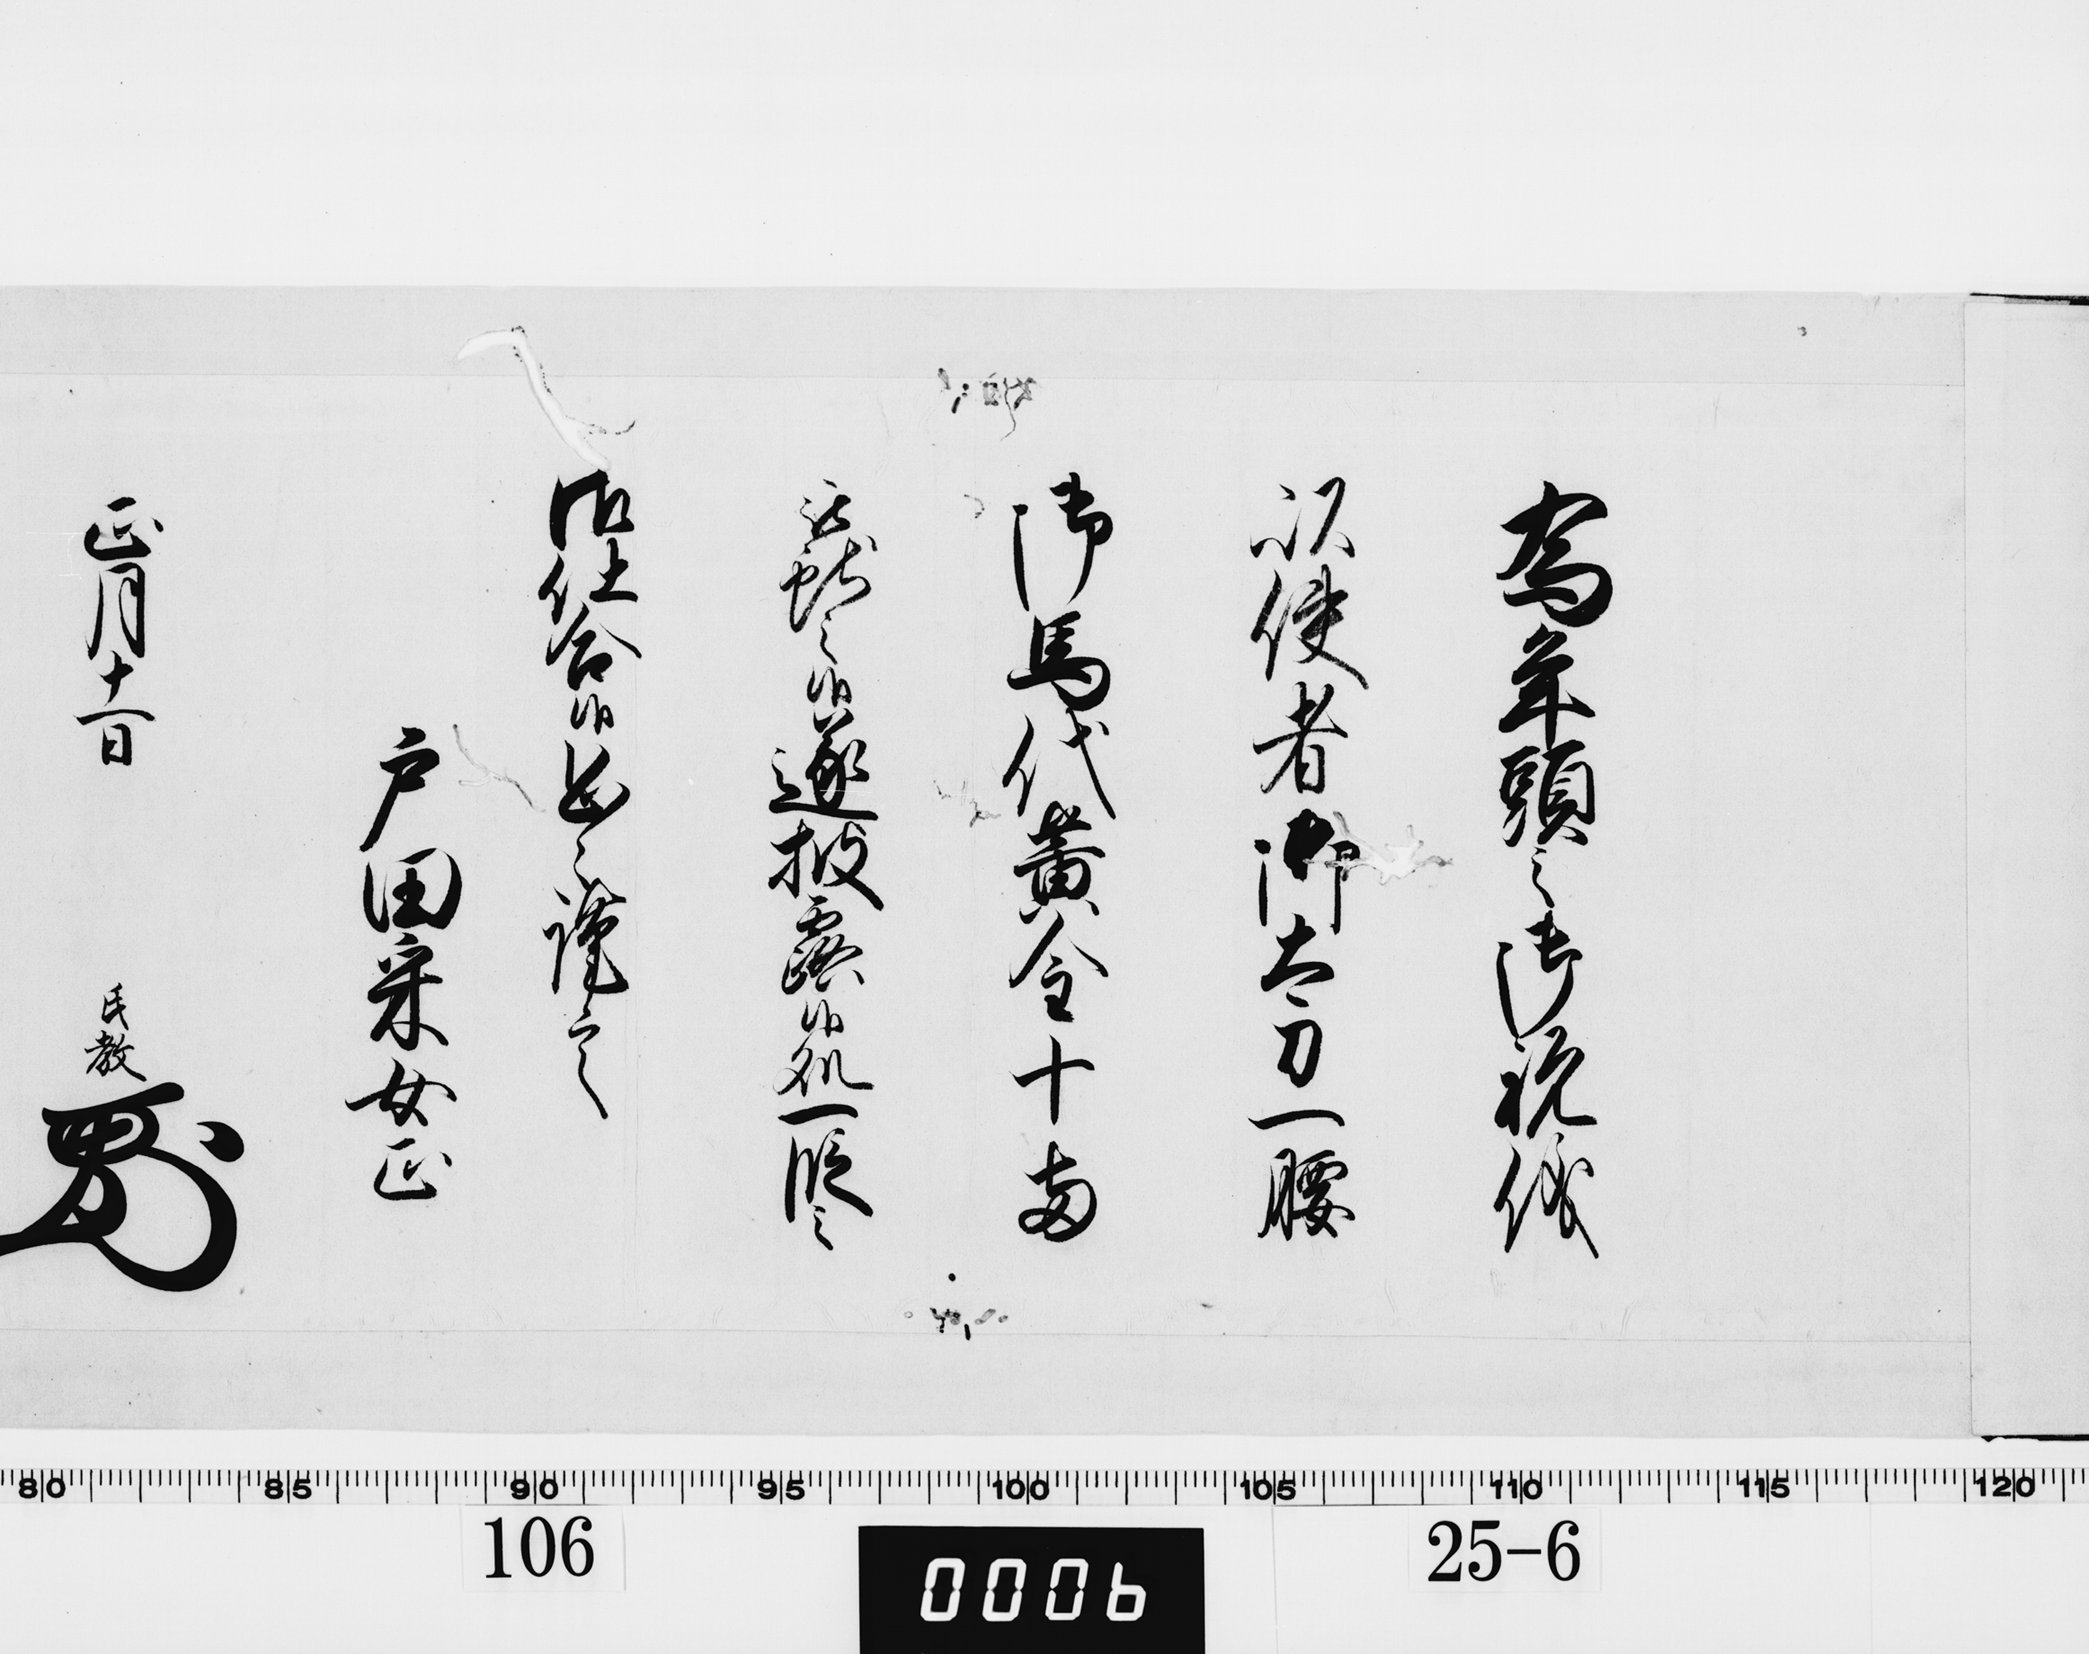 為年頭之御祝儀
以使者御太刀一腰
御馬代黄金十両
被献之候遂披露候処一段之
御仕合候恐々謹言
戸田采女正
正月十一日
氏教
80 85 90 95 100 105 110 115 120
106
0006
25-6